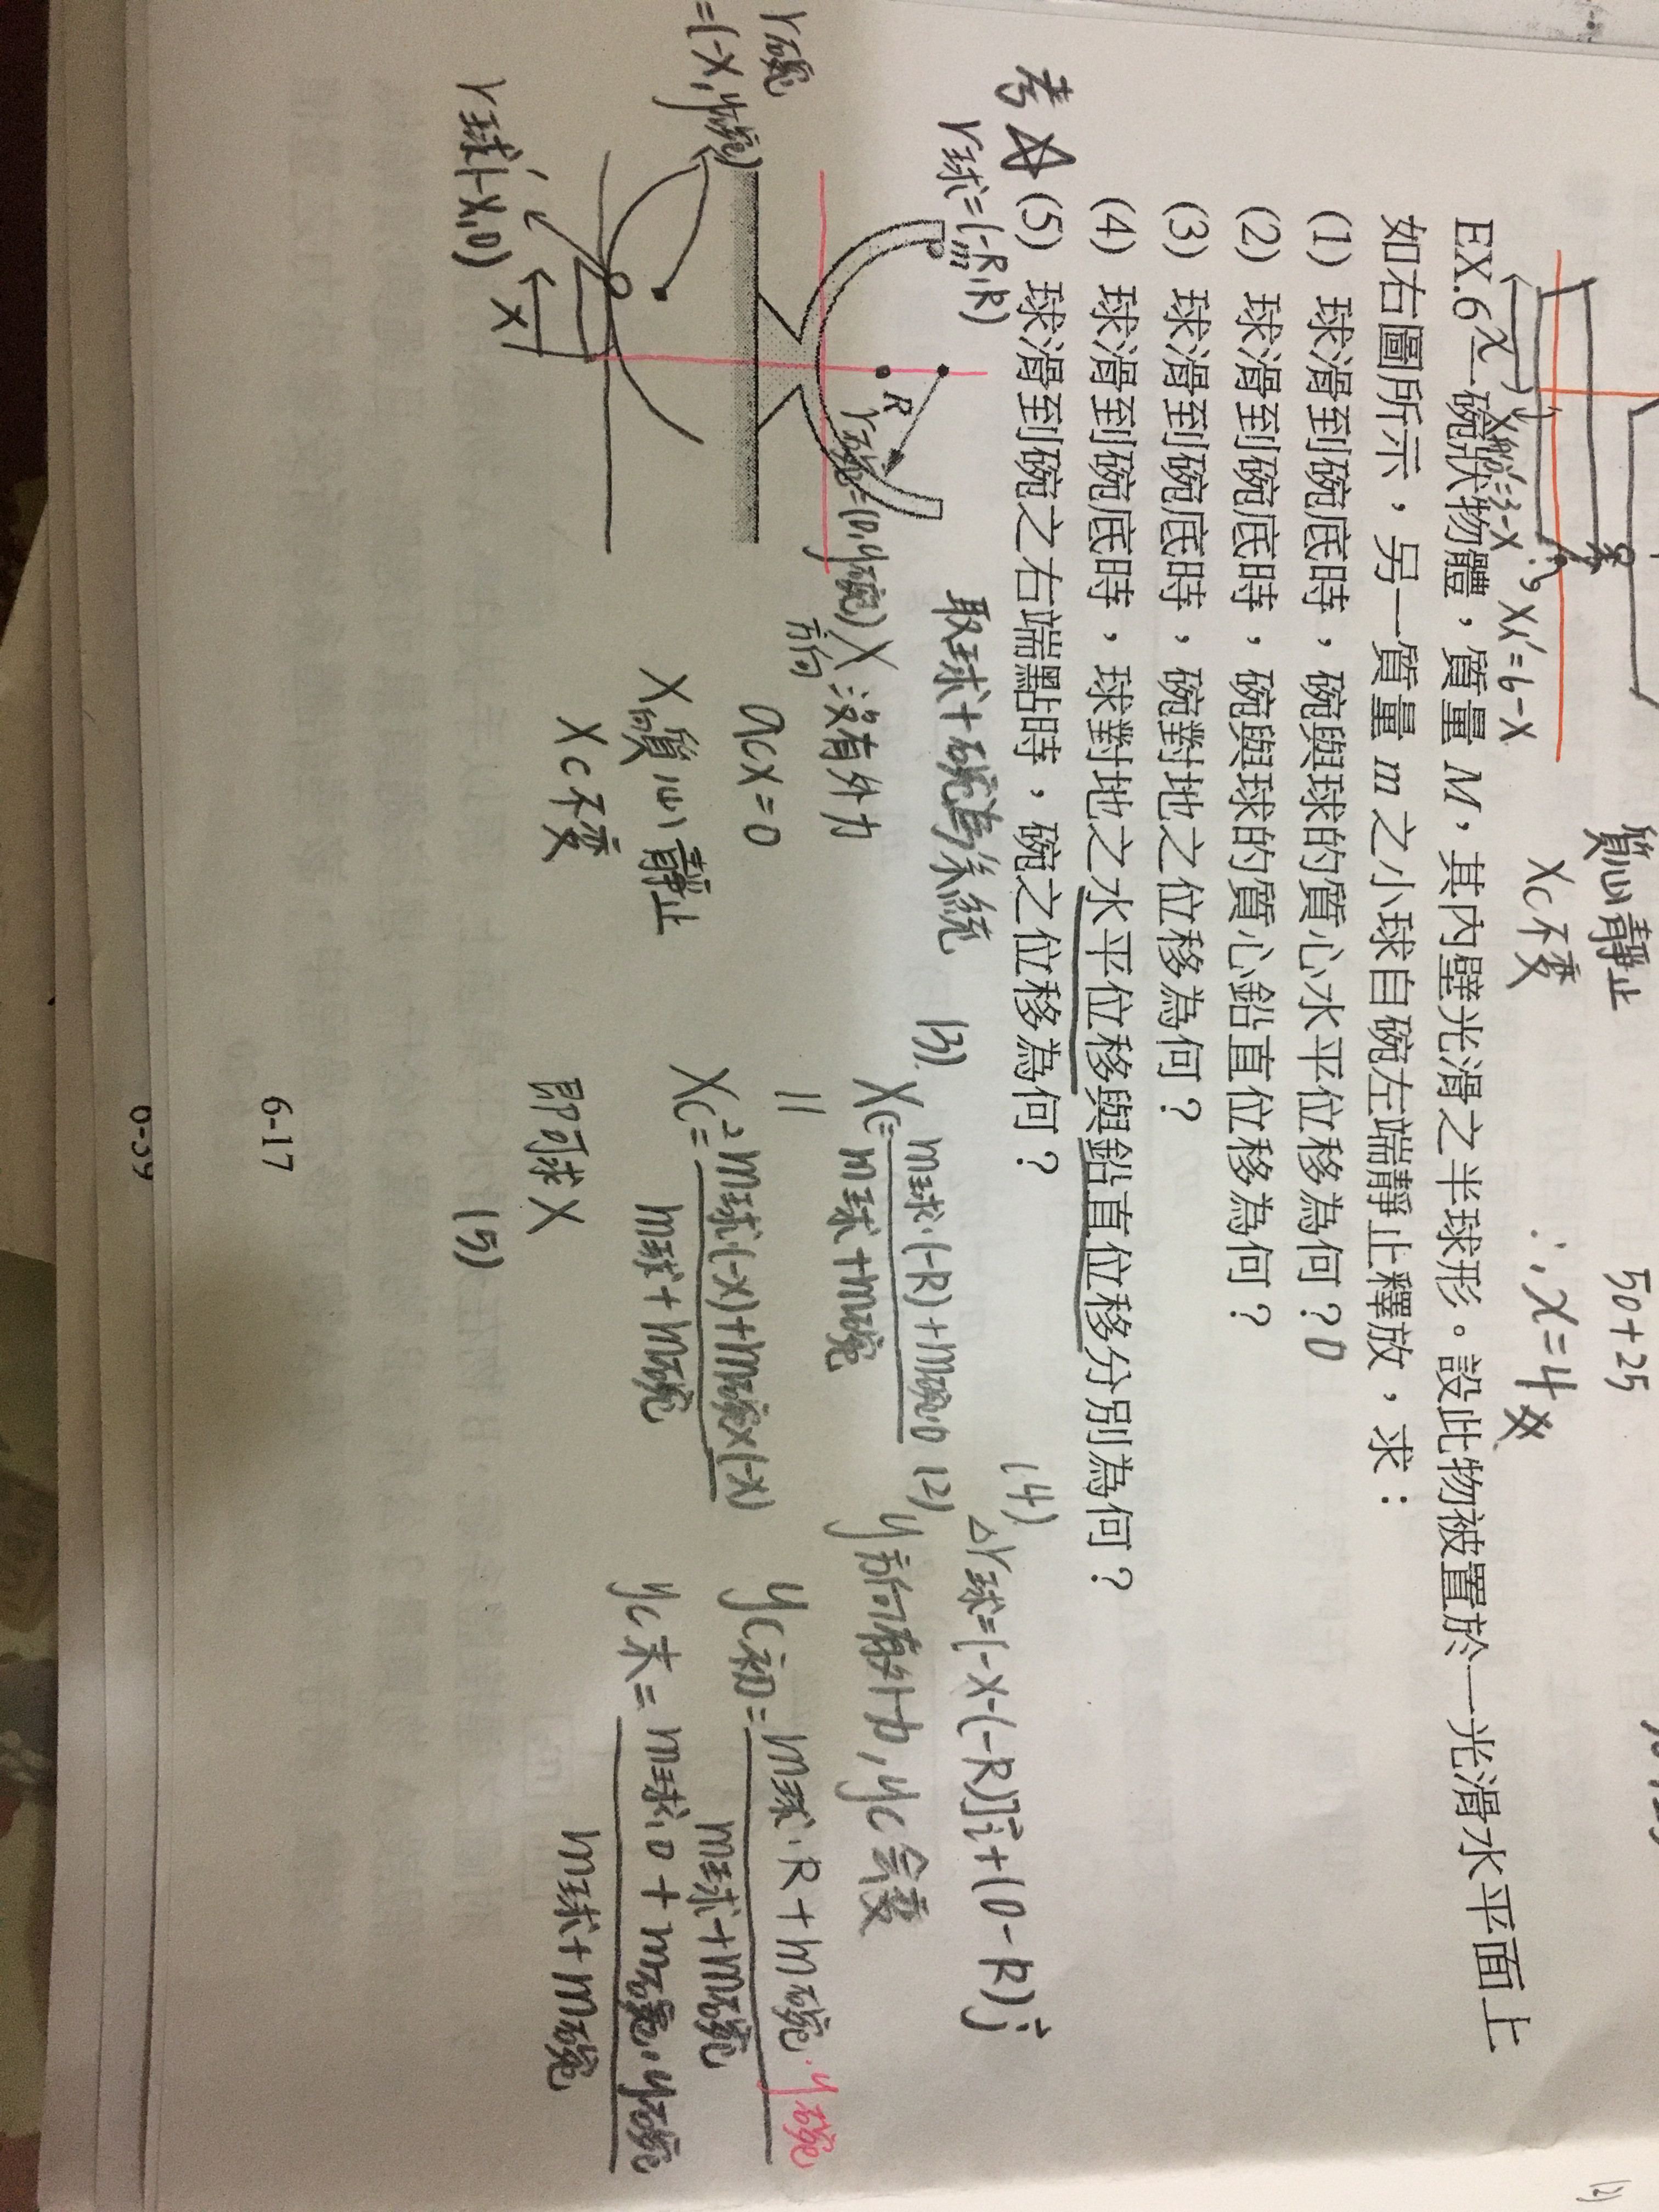 質心靜止
Xc不變
50+25
∴x=4
x
X船'=3-x
X人'=6-x
EX.6 一碗狀物體，質量 M，其內壁光滑之半球形。設此物被置於一光滑水平面上
如右圖所示，另一質量 m 之小球自碗左端靜止釋放，求：
(1) 球滑到碗底時，碗與球的質心水平位移為何？0
(2) 球滑到碗底時，碗與球的質心鉛直位移為何？
(3) 球滑到碗底時，碗對地之位移為何？
(4) 球滑到碗底時，球對地之水平位移與鉛直位移分別為何？
考☆(5) 球滑到碗之右端點時，碗之位移為何？
r球=(-R,R)
m
R
r碗=(0,y碗)
r碗'
=(-x,y碗)
r球'(-x,0)
x
取球+碗為系統
X方向:沒有外力
acx=0
X向質心靜止
Xc不變
(3).
Xc=m球·(-R)+m碗·0
m球+m碗
||
Xc'=m球·(-x)+m碗×(-x)
m球+m碗
即可求X
(5)
(4).
△r球=[-x-(-R)]i+(0-R)j
(2)
y方向有外力,yc會變
yc初=m球·R+m碗·y碗
m球+m碗
yc末=m球·0+m碗·y碗
m球+m碗
6-17